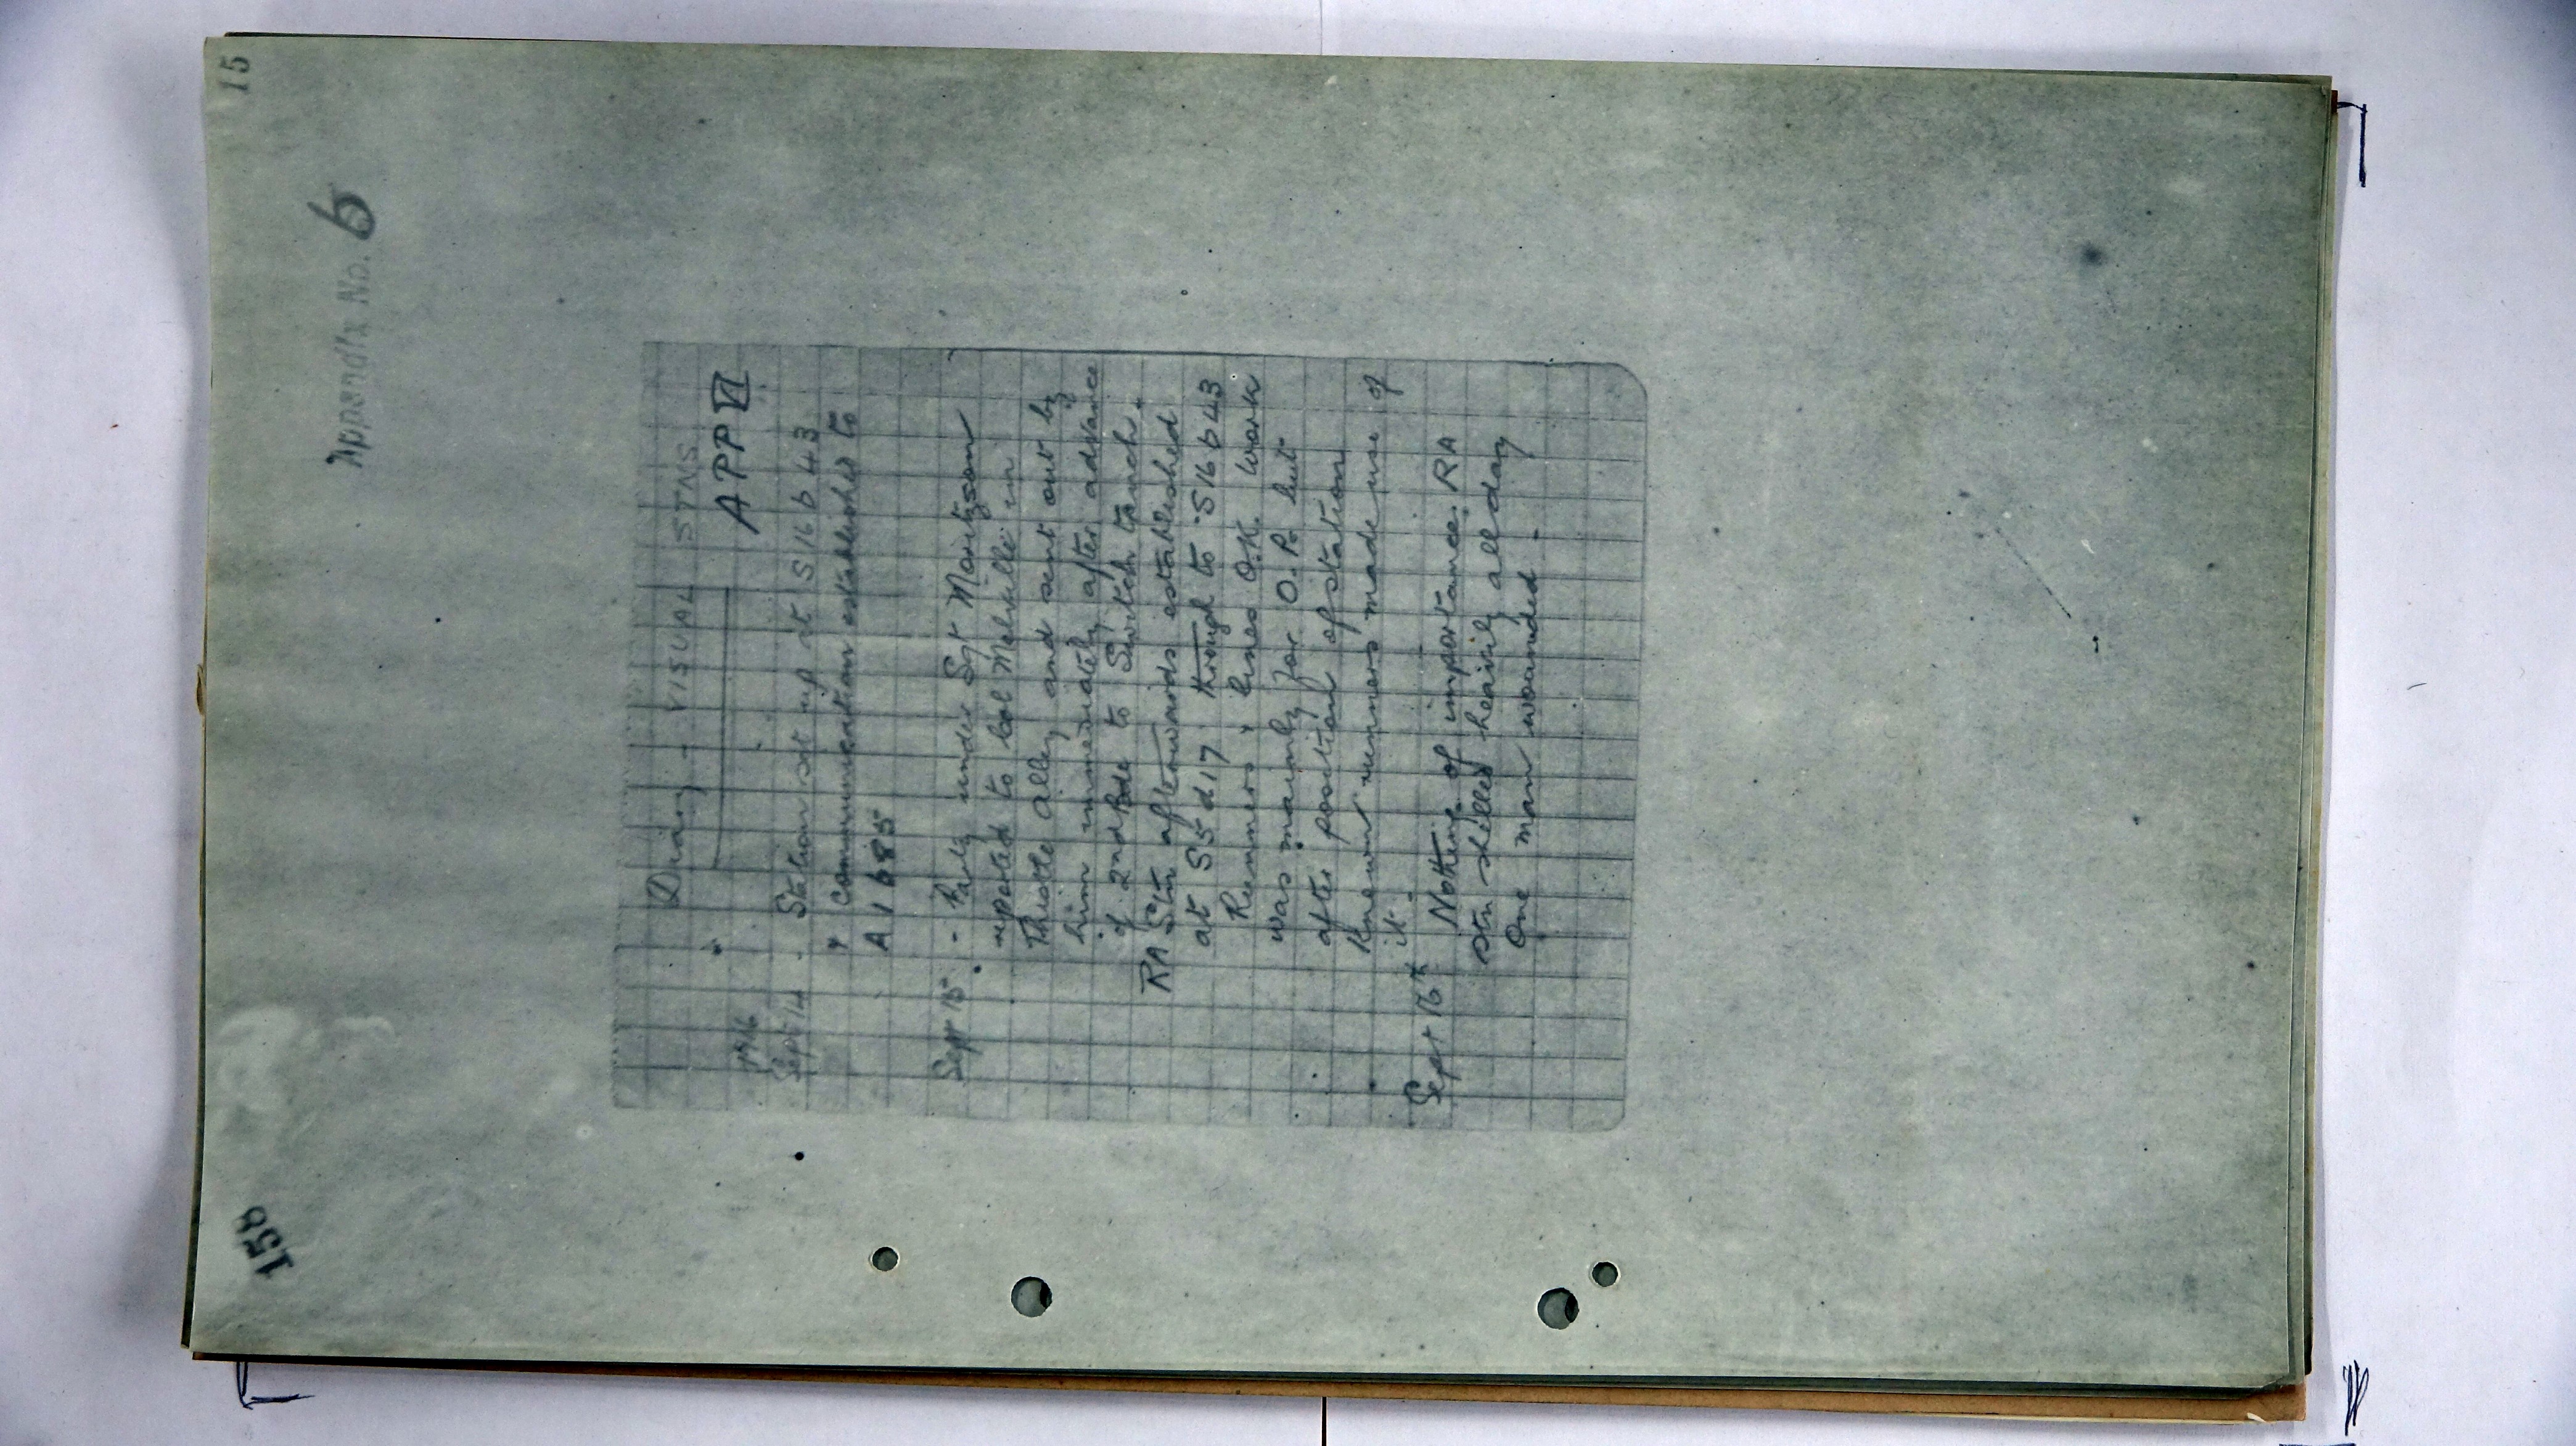 158
15
Appendix No. 6
Diary - VISUAL STNS
APP VI
1916
Sept 14 - Station set up at S16 b 43
& communication established to
A 1 b 8 5
Sept 15 - Party under Sgt Moritzson
reported to Col Melville in
Thistle Alley and sent out by
him immediately after advance
of 2nd Bde to Switch trench &
RA Stn afterwards established
at S5 d 17 through to S16 b 43
Runners & lines O.K. Work
was mainly for O.Ps but
after position of station
known runners made use of
it -
Sept 16th Nothing of importance. RA
stn shelled heavily all day
One man wounded -